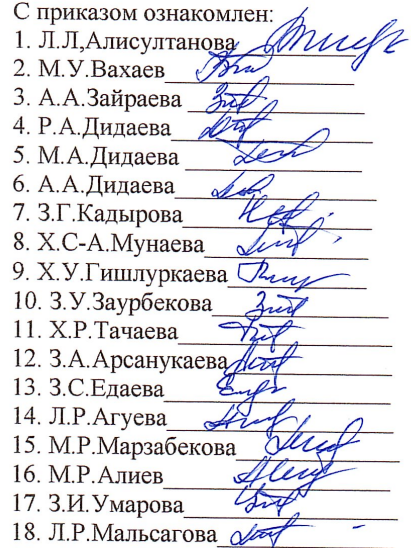 С приказом ознакомлен:
1. Л.Л,Алисултанова
2. М.У.Вахаев
3. А.А.Зайраева
4. Р.А.Дидаева
5. М.А.Дидаева
6. А.А.Дидаева
7. З.Г.Кадырова
8. Х.С-А.Мунаева
9. Х.У.Гишлуркаева
10. З.У.Заурбекова
11. Х.Р.Тачаева
12. З.А.Арсанукаева
13. З.С.Едаева
14. Л.Р.Агуева
15. М.Р.Марзабекова
16. М.Р.Алиев
17. З.И.Умарова
18. Л.Р.Мальсагова